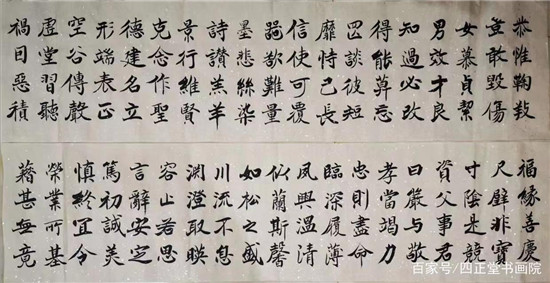 恭惟鞠養
豈敢毀傷
女慕貞絜
男效才良
知過必改
得能莫忘
罔談彼短
靡恃己長
信使可覆
器欲難量
墨悲絲染
詩讚羔羊
景行維賢
克念作聖
德建名立
形端表正
空谷傳聲
虛堂習聽
禍因惡積
福緣善慶
尺璧非寶
寸陰是競
資父事君
曰嚴與敬
孝當竭力
忠則盡命
臨深履薄
夙興溫清
似蘭斯馨
如松之盛
川流不息
淵澄取映
容止若思
言辭安定
篤初誠美
慎終宜令
榮業所基
藉甚無竟
百家号/四正堂书画院